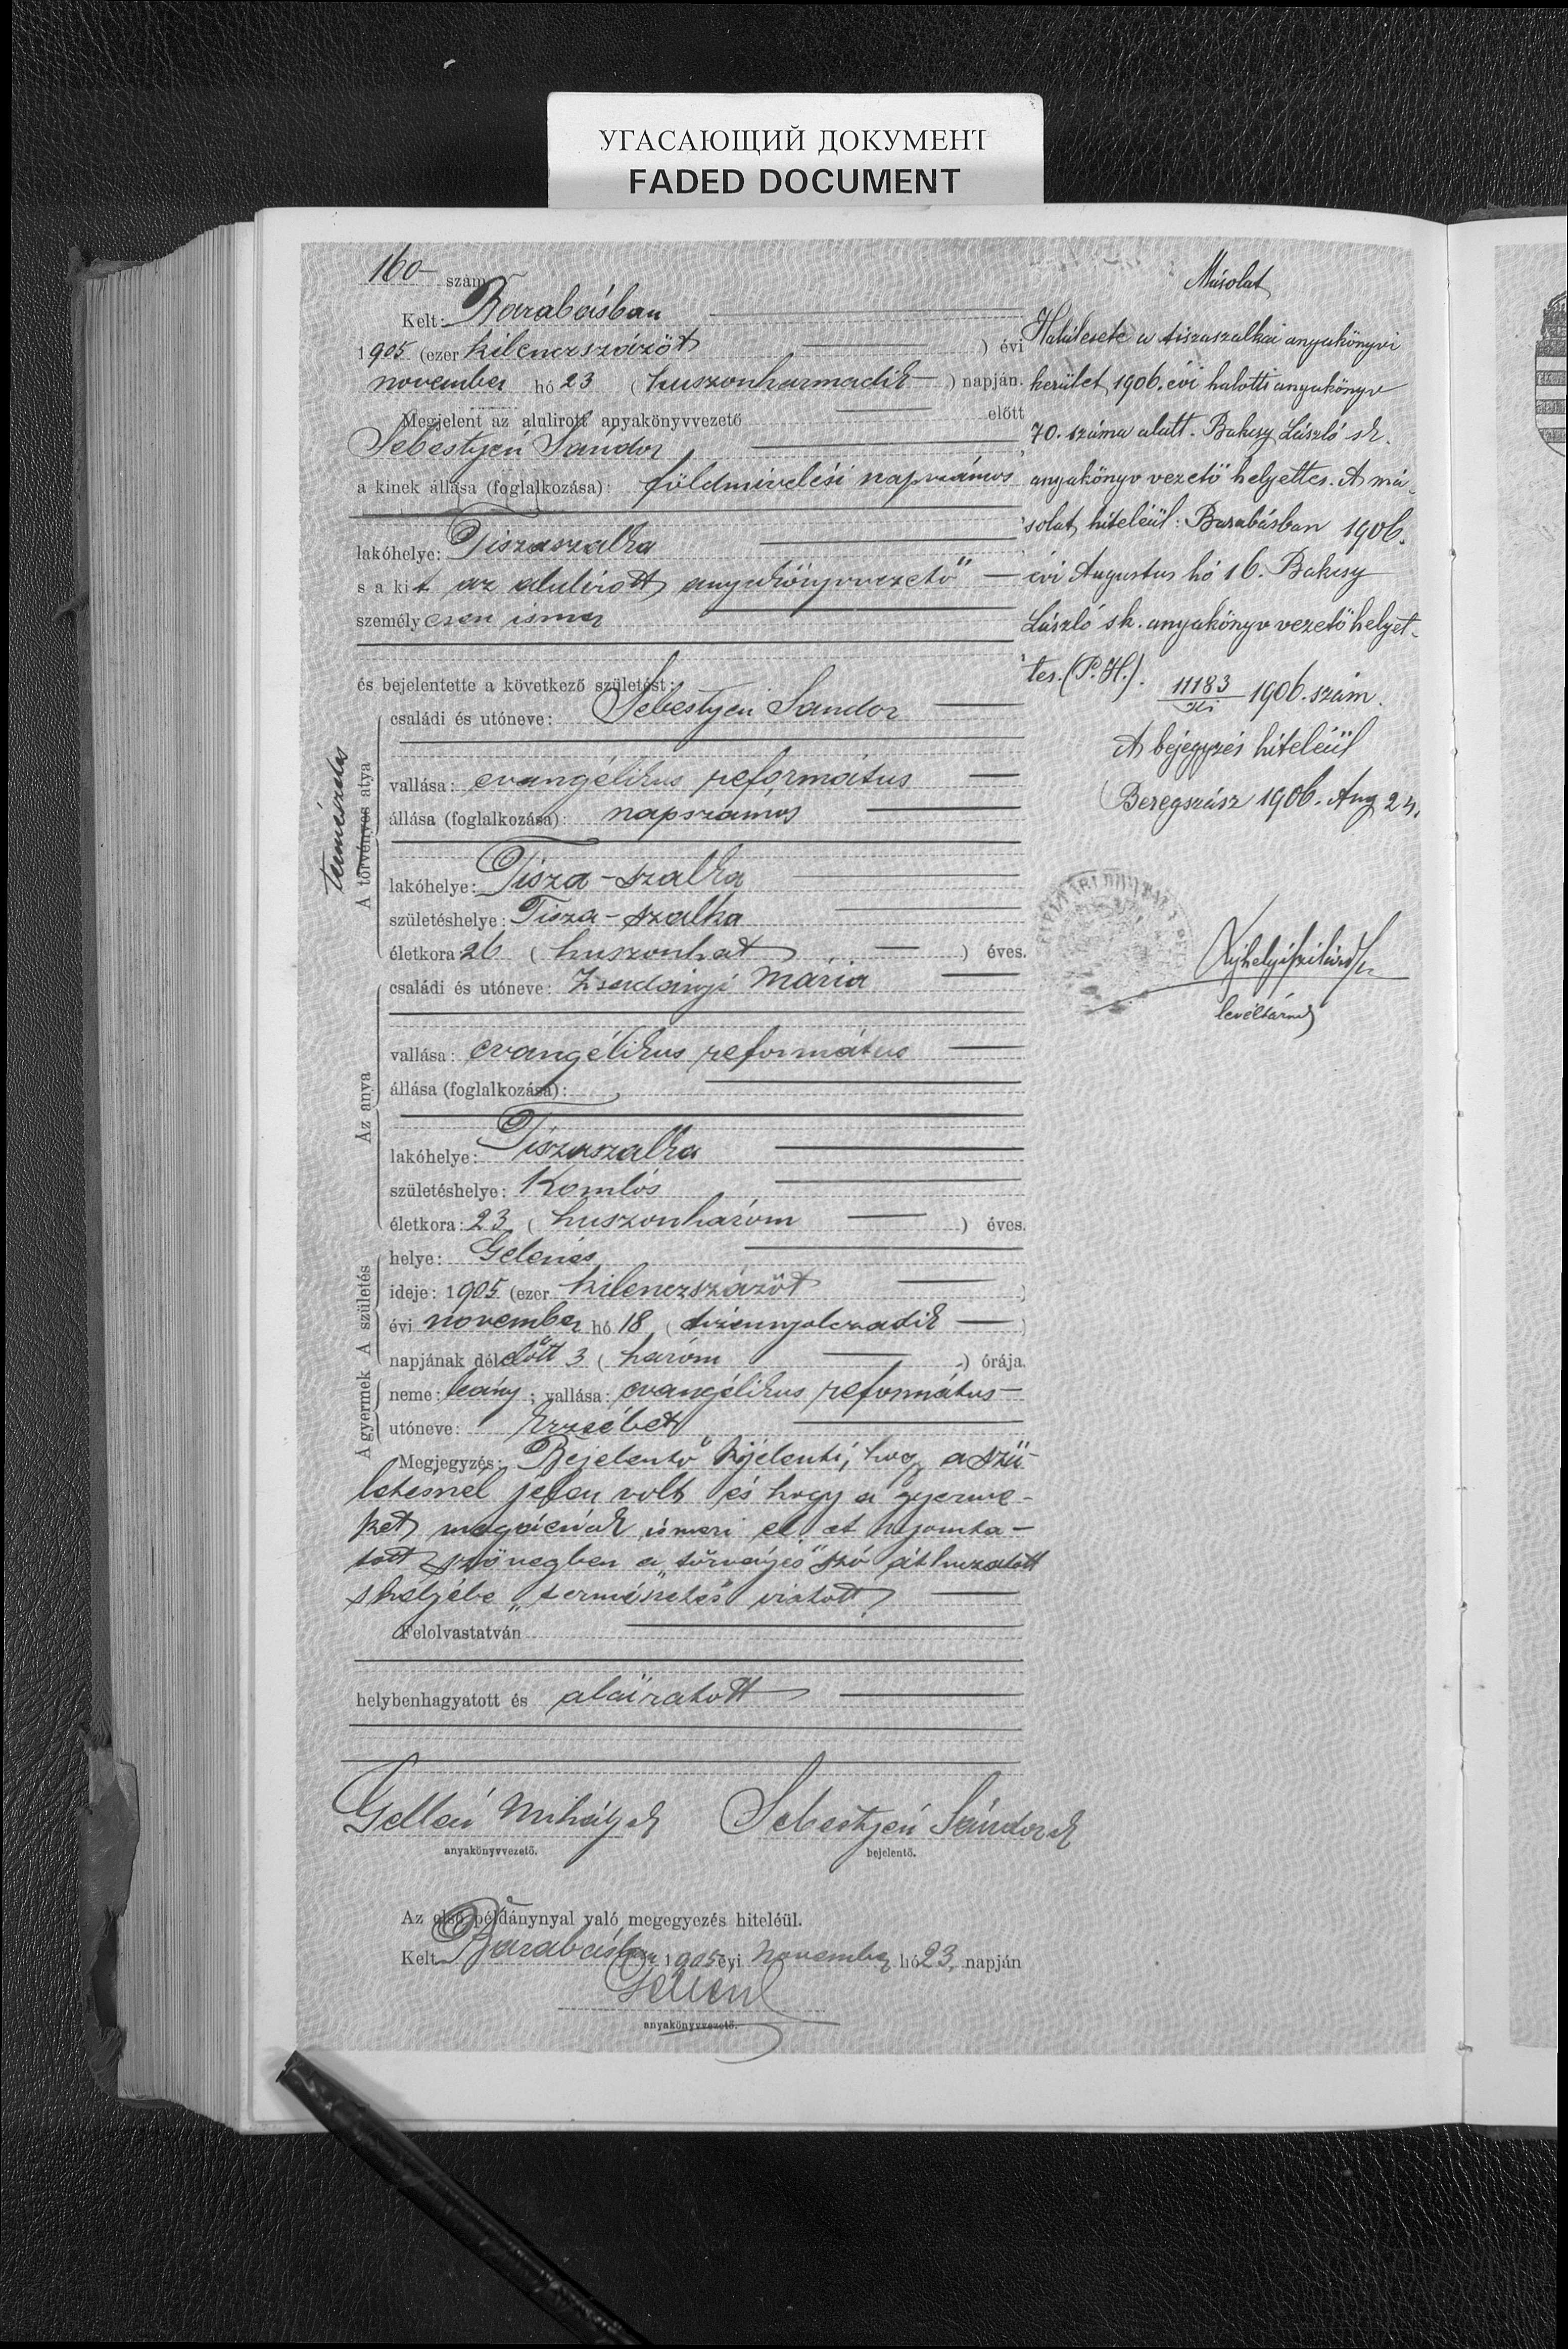 УГАСАЮЩИЙ ДОКУМЕНТ
FADED DOCUMENT
160 szám
Kelt: Barabásban
1905 (ezer kilenczszázöt ) évi
november hó 23 (huszonharmadik ) napján.
Megjelent az alulirott anyakönyvvezető előtt
Sebestyén Sándor
a kinek állása (foglalkozása): földmivelési napszámos
lakóhelye: Tiszaszalka
s a kit az alulirott anyakönyvvezető
személyesen ismer
és bejelentette a következő születést:
természetes
A törvényes atya
családi és utóneve: Sebestyén Sándor
vallása: evangélikus református
állása (foglalkozása): napszámos
lakóhelye: Tisza-szalka
születéshelye: Tisza-szalka
életkora 26 (huszonhat ) éves.
Az anya
családi és utóneve: Zsadányi Mária
vallása: evangélikus református
állása (foglalkozása):
lakóhelye: Tiszaszalka
születéshelye: Komlós
életkora: 23 (huszonhárom ) éves.
A születés
helye: Gelénes
ideje: 1905 (ezer kilenczszázöt )
évi november hó 18 (tizennyolczadik )
napjának délelőtt 3 (három ) órája.
A gyermek
neme: leány; vallása: evangélikus református
utóneve: Erzsébet
Megjegyzés: Bejelentő kijelenti, hogy a szü-
letésnél jelen volt és hogy a gyerme-
ket magáénak ismeri el, at nyomta-
tott szövegben a „törvényes" szó áthuzatott
s helyébe „természetes" iratott
Felolvastatván
helybenhagyatott és aláiratott
Gellén Mihály sk Sebestyén Sándor sk
anyakönyvvezető. bejelentő.
Az első példánynyal való megegyezés hiteléül.
Kelt Barabásban 1905 évi november hó 23. napján
Gellén
anyakönyvvezető.
Másolat
Halálesete a tiszaszalkai anyakönyvi
kerület 1906. évi halotti anyakönyv
70. száma alatt. Bakcsy László sk.
anyakönyv vezető helyettes. A má-
solat hiteléül: Barabásban 1906.
évi Augustus hó 16. Bakcsy
László sk. anyakönyv vezető helyet-
tes. (P.H.).
11183
1906. szám.
A bejegyzés hiteléül
Beregszász 1906. Aug 24.
levéltárnok